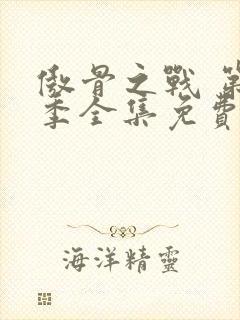 傲骨之戰 第
季全集免費
海洋精靈